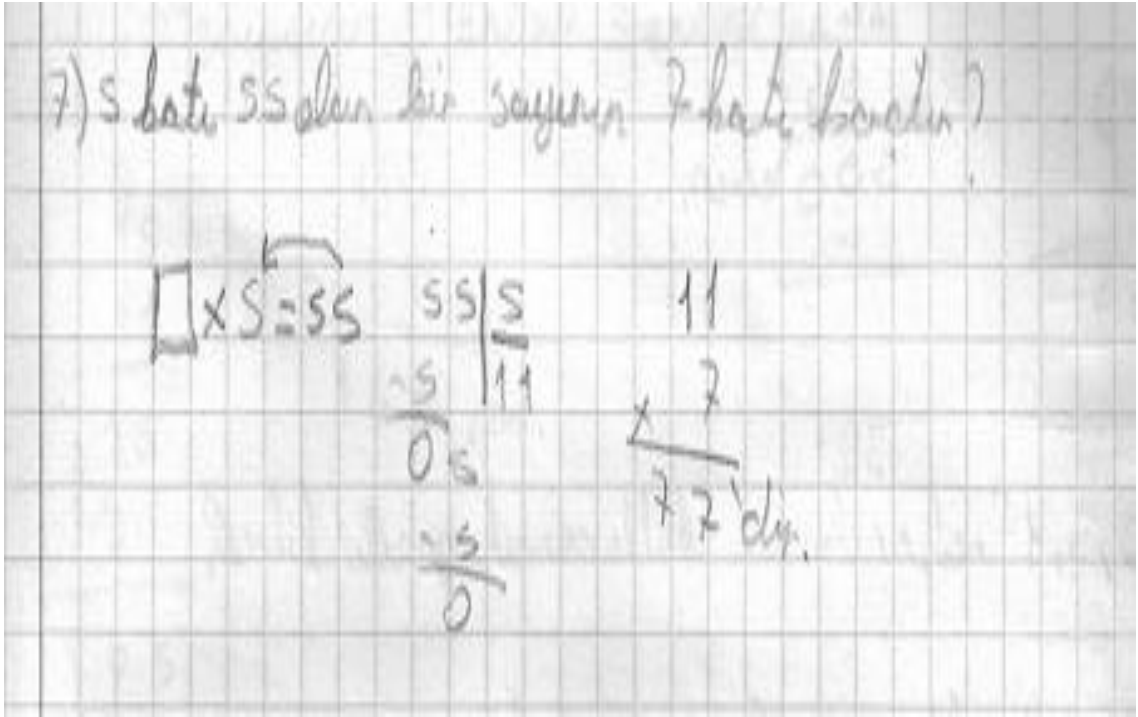 7) 5 katı 55 olan bir sayının 7 katı kaçtır?
□ x 5 = 55
55 | 5
-5 | 11
05
-5
0
11
x 7
77'dir.